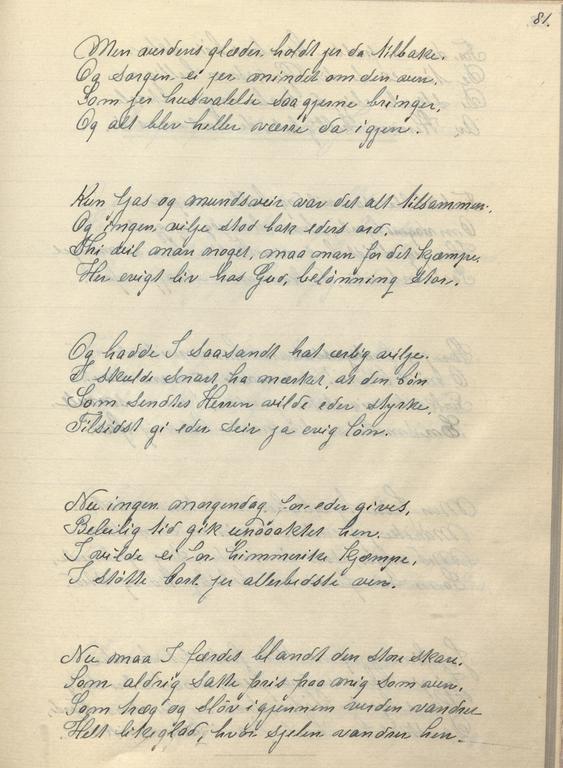 81.
Men verdens glæder holdt jer da tilbake.
Og sorgen ei jer mindet om den ven.
Som jer husvalelse saa gjerne bringer,
Og alt blev heller værre da igjen.
Kun Gas og mundsveir var det alt tilsammen.
Og ingen vilje stod bak eders ord.
Thi vil man noget, maa man for det kjæmpe.
Her evigt liv hos Gud, belönning stor.
Og hadde I saasandt hat ærlig vilje.
I skulde snart ha mærket, at den bön
Som sendtes Herren vilde eder styrke,
Tilsidst gi eder seir ja evig lön.
Nu ingen morgendag for eder gives,
Beleilig tid gik uadaktet hen.
I vilde ei for himmerike kjæmpe,
I stötte bort jer allerbedste ven.
Nu maa I færdes blandt den store skare.
Som aldrig satte pris paa mig som ven.
Som træg og slöv igjennem verden vandrer
Helt likeglad, hvor sjelen vandrer hen.